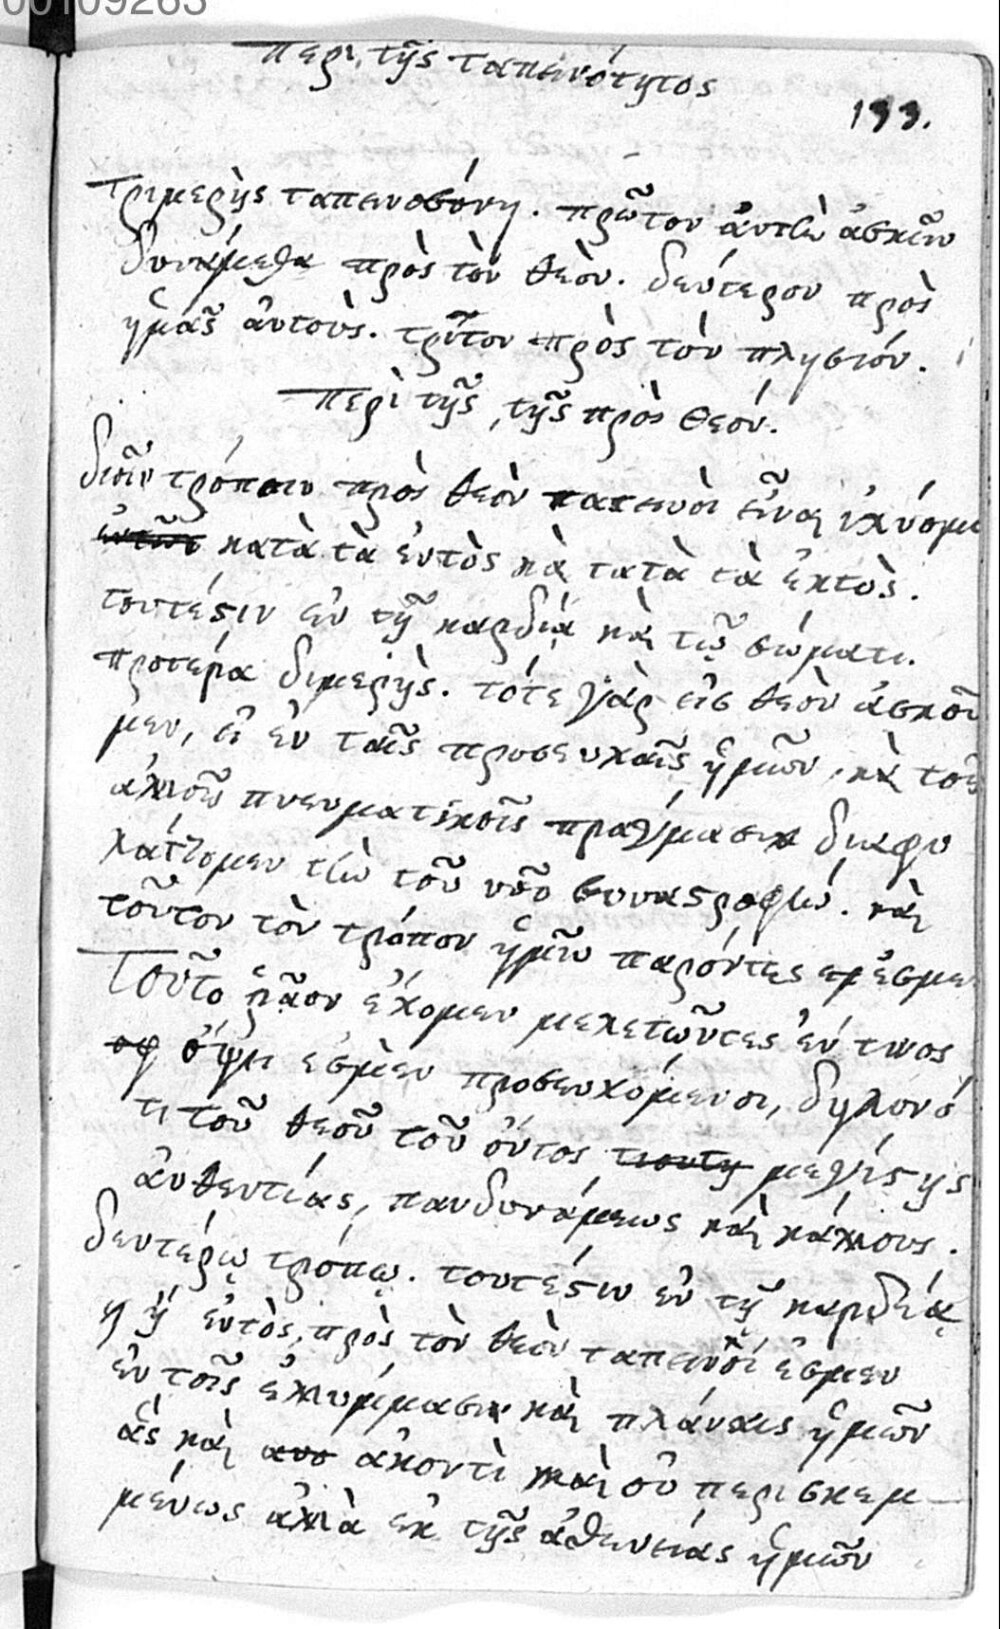 00109263
Περὶ τῆς ταπεινότητος
133.
Τριμερὴς ταπεινοσύνη. πρῶτον ἀυτὴν ἀσκεῖν
δυνάμεθα πρὸς τὸν θεὸν. δεύτερον πρὸς
ἡμᾶς ἀυτοὺς. τρῖτον πρὸς τὸν πλησιόν.
Περὶ τῆς, τῆς πρὸς θεόν.
διοῖν τρόποιν πρὸς θεὸν ταπεινὸι εἶναι
κατὰ τὰ ἐντὸς κὰι τατὰ τὰ ἐκτὸς.
τουτέστιν ἐν τῇ καρδίᾳ κὰι τῷ σώματι.
προτέρα διμερὴς. τότε γὰρ εἰς θεὸν ἀσκοῦ
μεν, εἰ ἐν ταῖς προσευχαῖς ἡμῶν, κὰι τοῖς
ἀλλοῖς πνευματικοῖς πράγμασιν διαφυ
λάττομεν τὴν τοῦ νοὸ συναστροφὴν. κὰι
τοῦτον τὸν τρόπον ἡμῖν παρόντες ἐσμεν
Τοῦτο ῥᾷον ἔχομεν μελετῶντες ἐν τινος
ὄψει ἐσμὲν προσευχόμενοι, δηλονό
τι τοῦ θεοῦ τοῦ ὄντος μεγίστης
ἀυθεντίας, πανδυνάμεως κὰι κάλλους.
δευτέρῳ τρόπῳ. τουτέστιν ἐν τῇ καρδίᾳ
ἢ ἐντὸς, πρὸς τὸν θεὸν ταπεινοί ἐσμεν
ἐν τοῖς ἐλλυμμασιν κὰι πλάναις ἡμῶν
ἃς κὰι ἀκοντὶ κὰι οὐ περισκεμ
μένως ἀλλὰ ἐκ τῆς ἀθενείας ἡμῶν